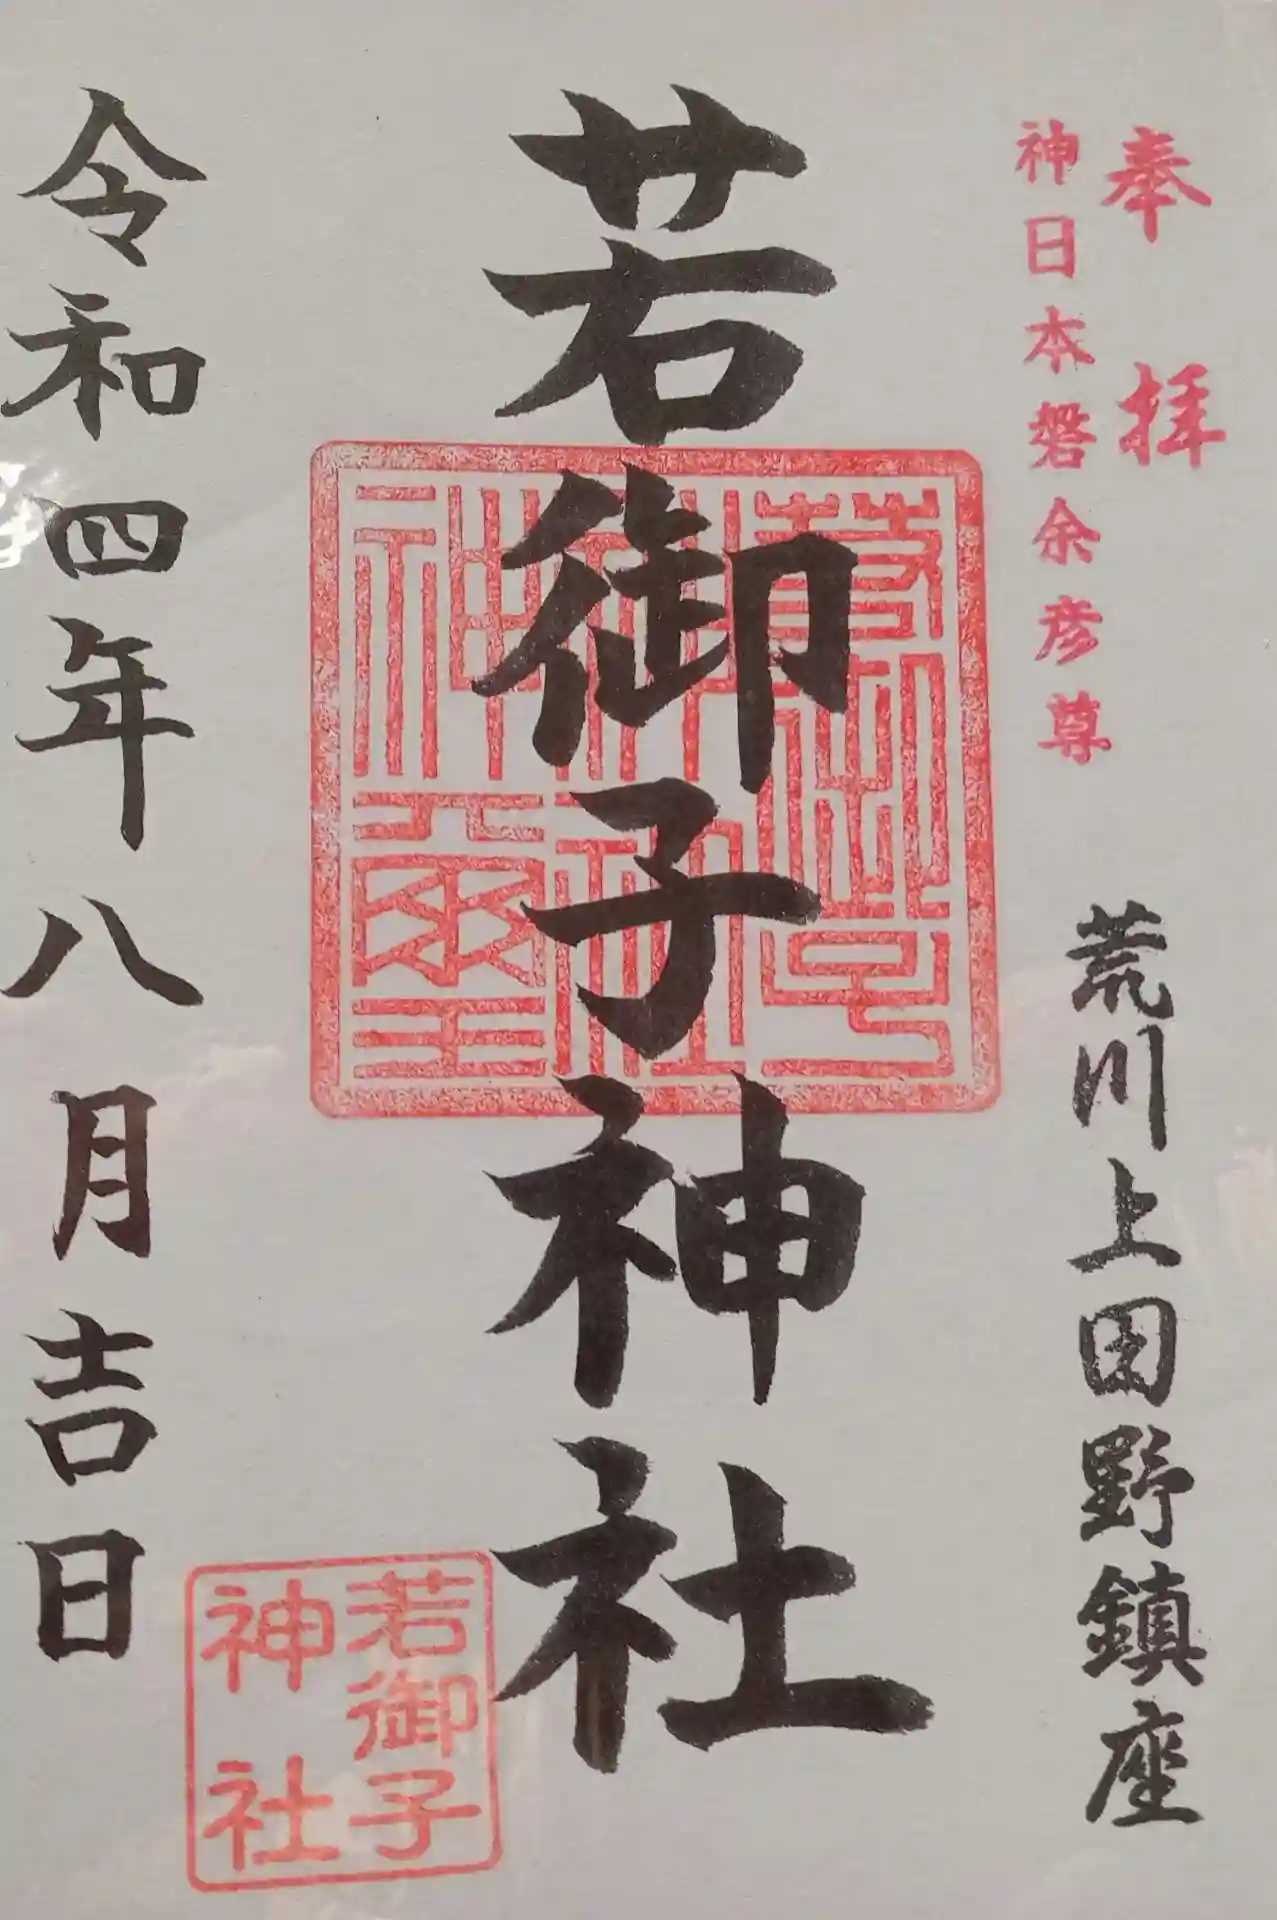 奉拝
神日本磐余彦尊
荒川上田野鎮座
若御子神社
令和四年八月吉日
若御子
神社